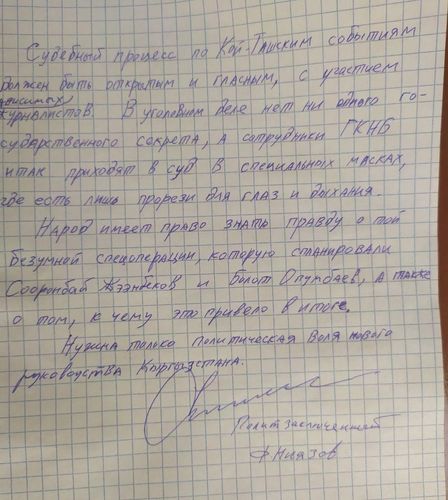 Судебный процесс по Кой-Ташским событиям
должен быть открытым и гласным, с участием
журналистов. В уголовном деле нет ни одного го-
сударственного секрета, а сотрудники ГКНБ
итак приходят в суд в специальных масках,
где есть лишь прорези для глаз и дыхания.
Народ имеет право знать правду о той
безумной спецоперации, которую спланировали
Сооронбай Жээнбеков и Болот Опумбаев, а также
о том, к чему это привело в итоге.
Нужна только политическая воля нового
руководства Кыргызстана.
Политзаключенный
Ф Ниязов